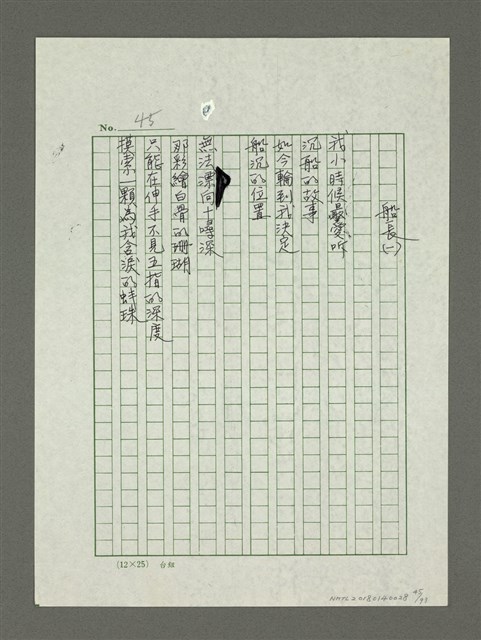 No. 45
船長(一)
我小時候最愛听
沉船的故事
如今輪到我決定
船沉的位置
無法潛向十噚深
那彩繪白骨的珊瑚
只能在伸手不見五指的深度
摸索一顆為我含淚的蚌珠
(12×25) 台組
NMTL20180140028 45/93